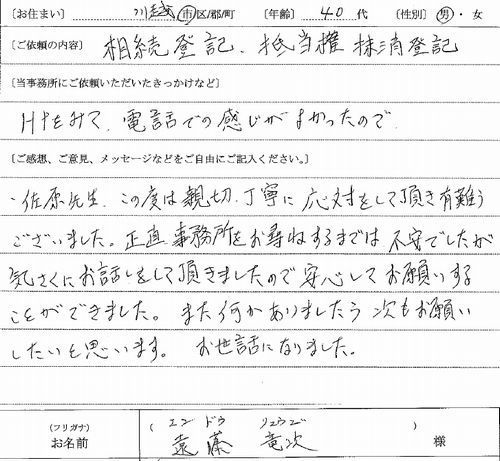 ［お住まい］ 川越 市区/郡/町 ［年齢］ 40 代 ［性別］ 男・女
［ご依頼の内容］ 相続登記、抵当権抹消登記
［当事務所にご依頼いただいたきっかけなど］
HPをみて、電話での感じがよかったので、
［ご感想、ご意見、メッセージなどをご自由にご記入ください。］
・佐原先生、この度は親切、丁寧に応対をして頂き有難う
ございました。正直事務所をお尋ねするまでは不安でしたが
気さくにお話しをして頂きましたので安心してお願いする
ことができました。また何かありましたら次もお願い
したいと思います。 お世話になりました。
（フリガナ） （ エンドウ リュウジ ）
お名前 遠藤 竜次 様